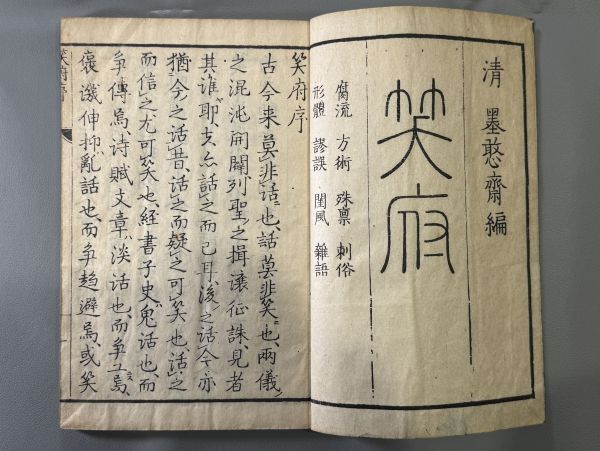 清 墨憨齋編
笑府
腐流 方術 殊稟 刺俗
形體 謬誤 閨風 雜語
笑府序
古今来莫非話也、話莫非笑也、兩儀
之混沌開闢、列聖之揖讓征誅、見者
其誰耶、夫亦話之而已耳、後之話今、亦
猶今之話昔、話之而疑之、可笑也、話之
而信之、尤可笑也、經書子史、鬼話也、而
爭傳焉、詩賦文章、淡話也、而爭工焉、
褒譏伸抑、亂話也、而爭趨避焉、或笑
笑府序